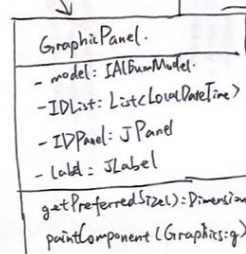 GraphicPanel.
- model: IAlbumModel.
- IDList: List<LocalDateTime>
- IDPanel: JPanel
- label: JLabel
getPreferredSize(): Dimension
paintComponent (Graphics:g)